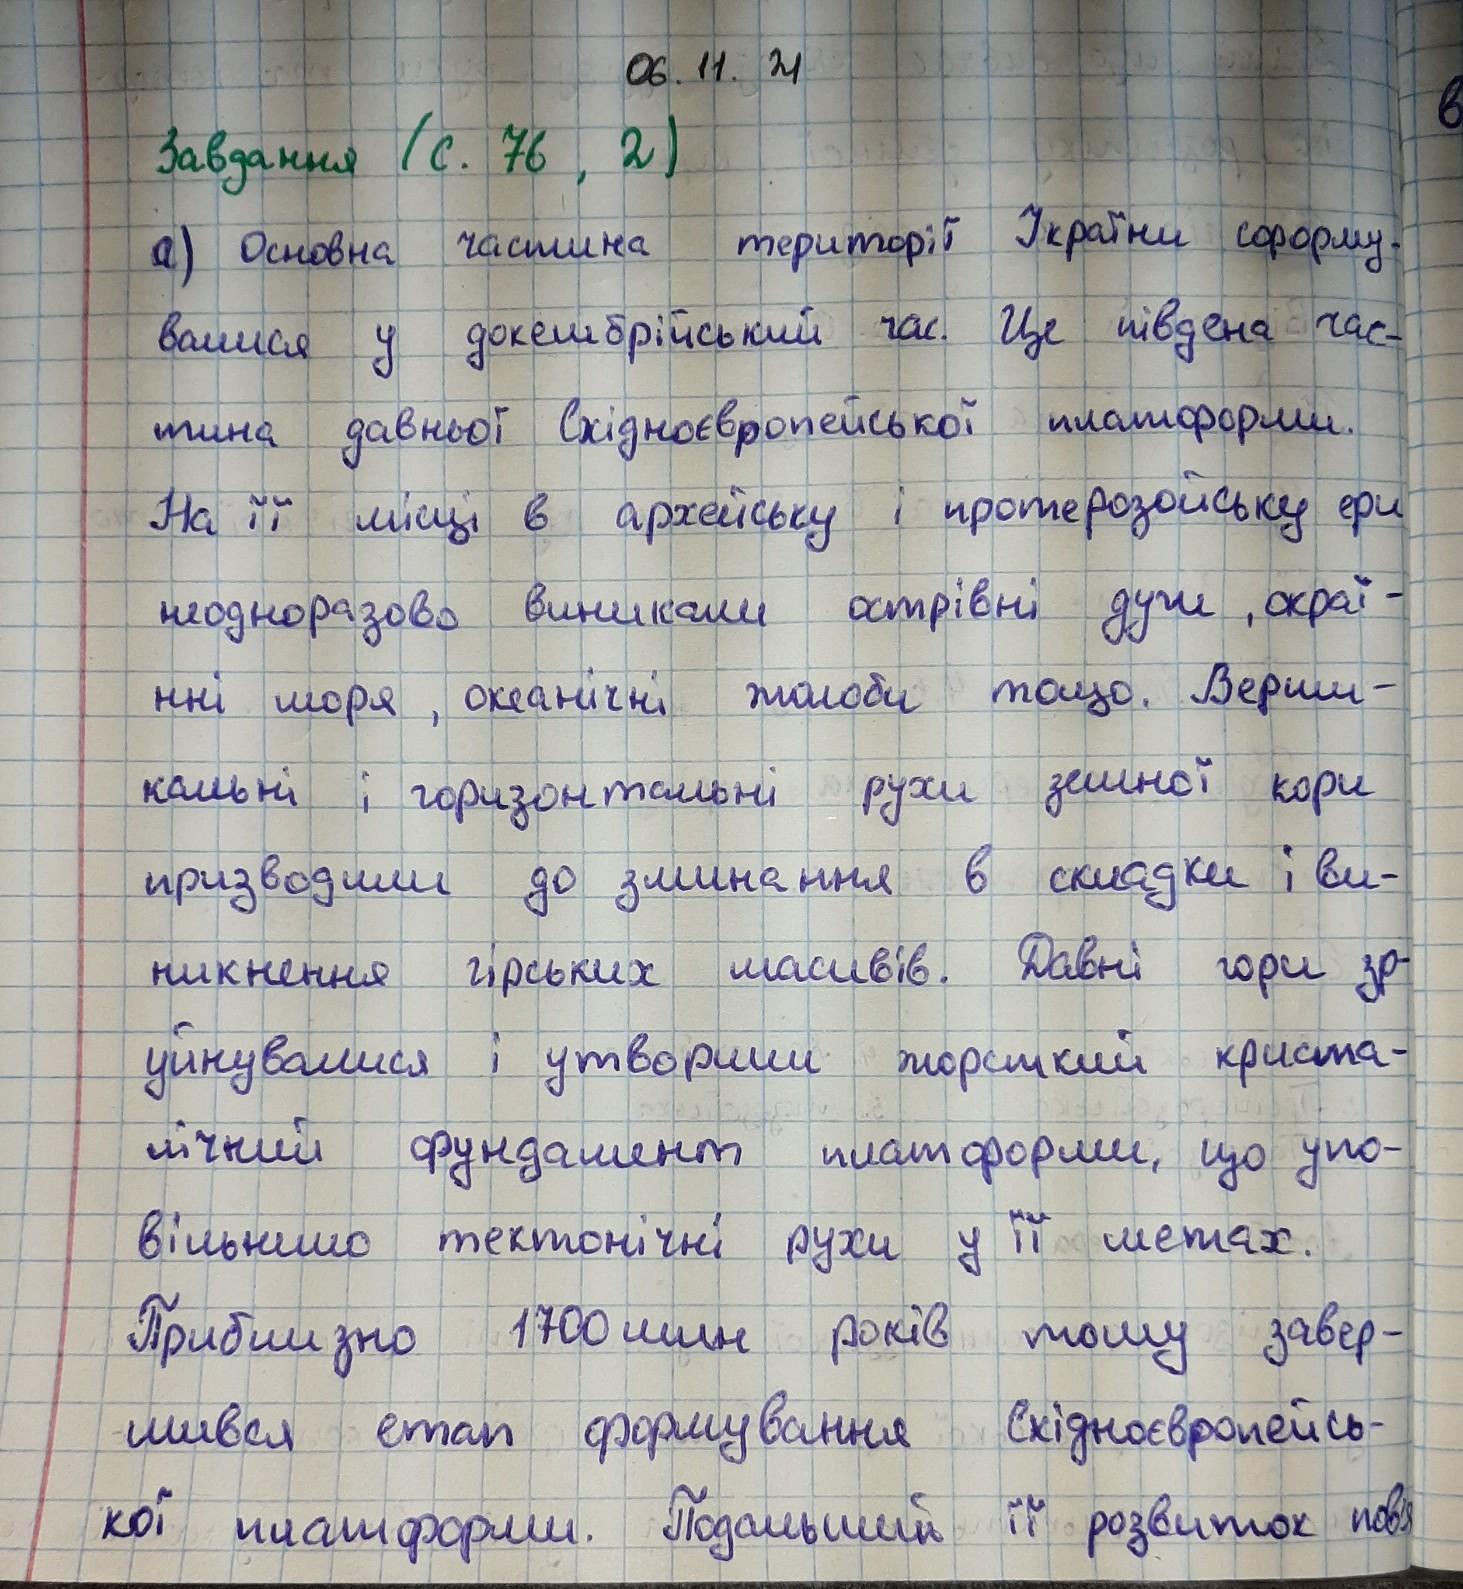 06. 11. 21
Завдання (с. 76, 2)
а) Основна частина території України сформу-
валися у докембрійський час. Це південа час-
тина давньої Східноєвропейської платформи.
На її місці в архейську і протерозойську ери
неодноразово виникали острівні дуги, окраї-
нні моря, океанічні жолоби тощо. Верти-
кальні і горизонтальні рухи земної кори
призводили до зминання в складки і ви-
никнення гірських масивів. Давні гори зр-
уйнувалися і утворили жорсткий криста-
лічний фундамент платформи, що упо-
вільнило тектонічні рухи у її метах.
Приблизно 1700 млн років тому завер-
шився етап формування Східноєвропейсь-
кої платформи. Подальший її розвиток пов'я